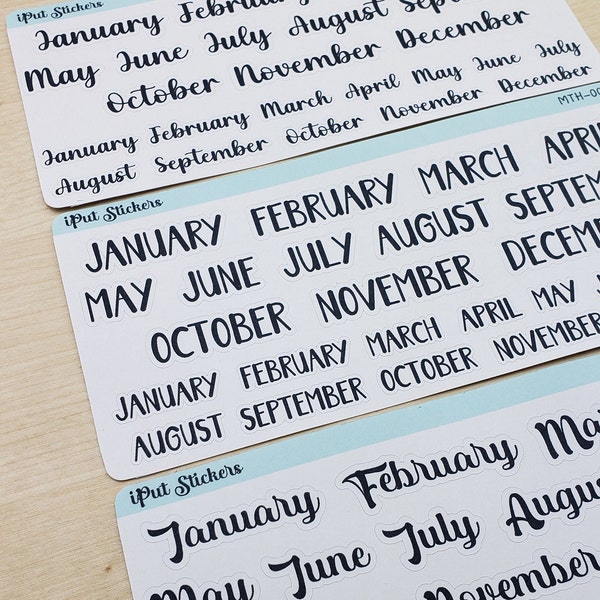 iPut Stickers
January February
May June July August Sept
October November December
January February March April May June July
August September October November December
MTH-00
iPut Stickers
JANUARY FEBRUARY MARCH APRI
MAY JUNE JULY AUGUST SEPTEM
OCTOBER NOVEMBER DECEM
JANUARY FEBRUARY MARCH APRIL MAY J
AUGUST SEPTEMBER OCTOBER NOVEMBER
iPut Stickers
January February Ma
May June July Augus
November